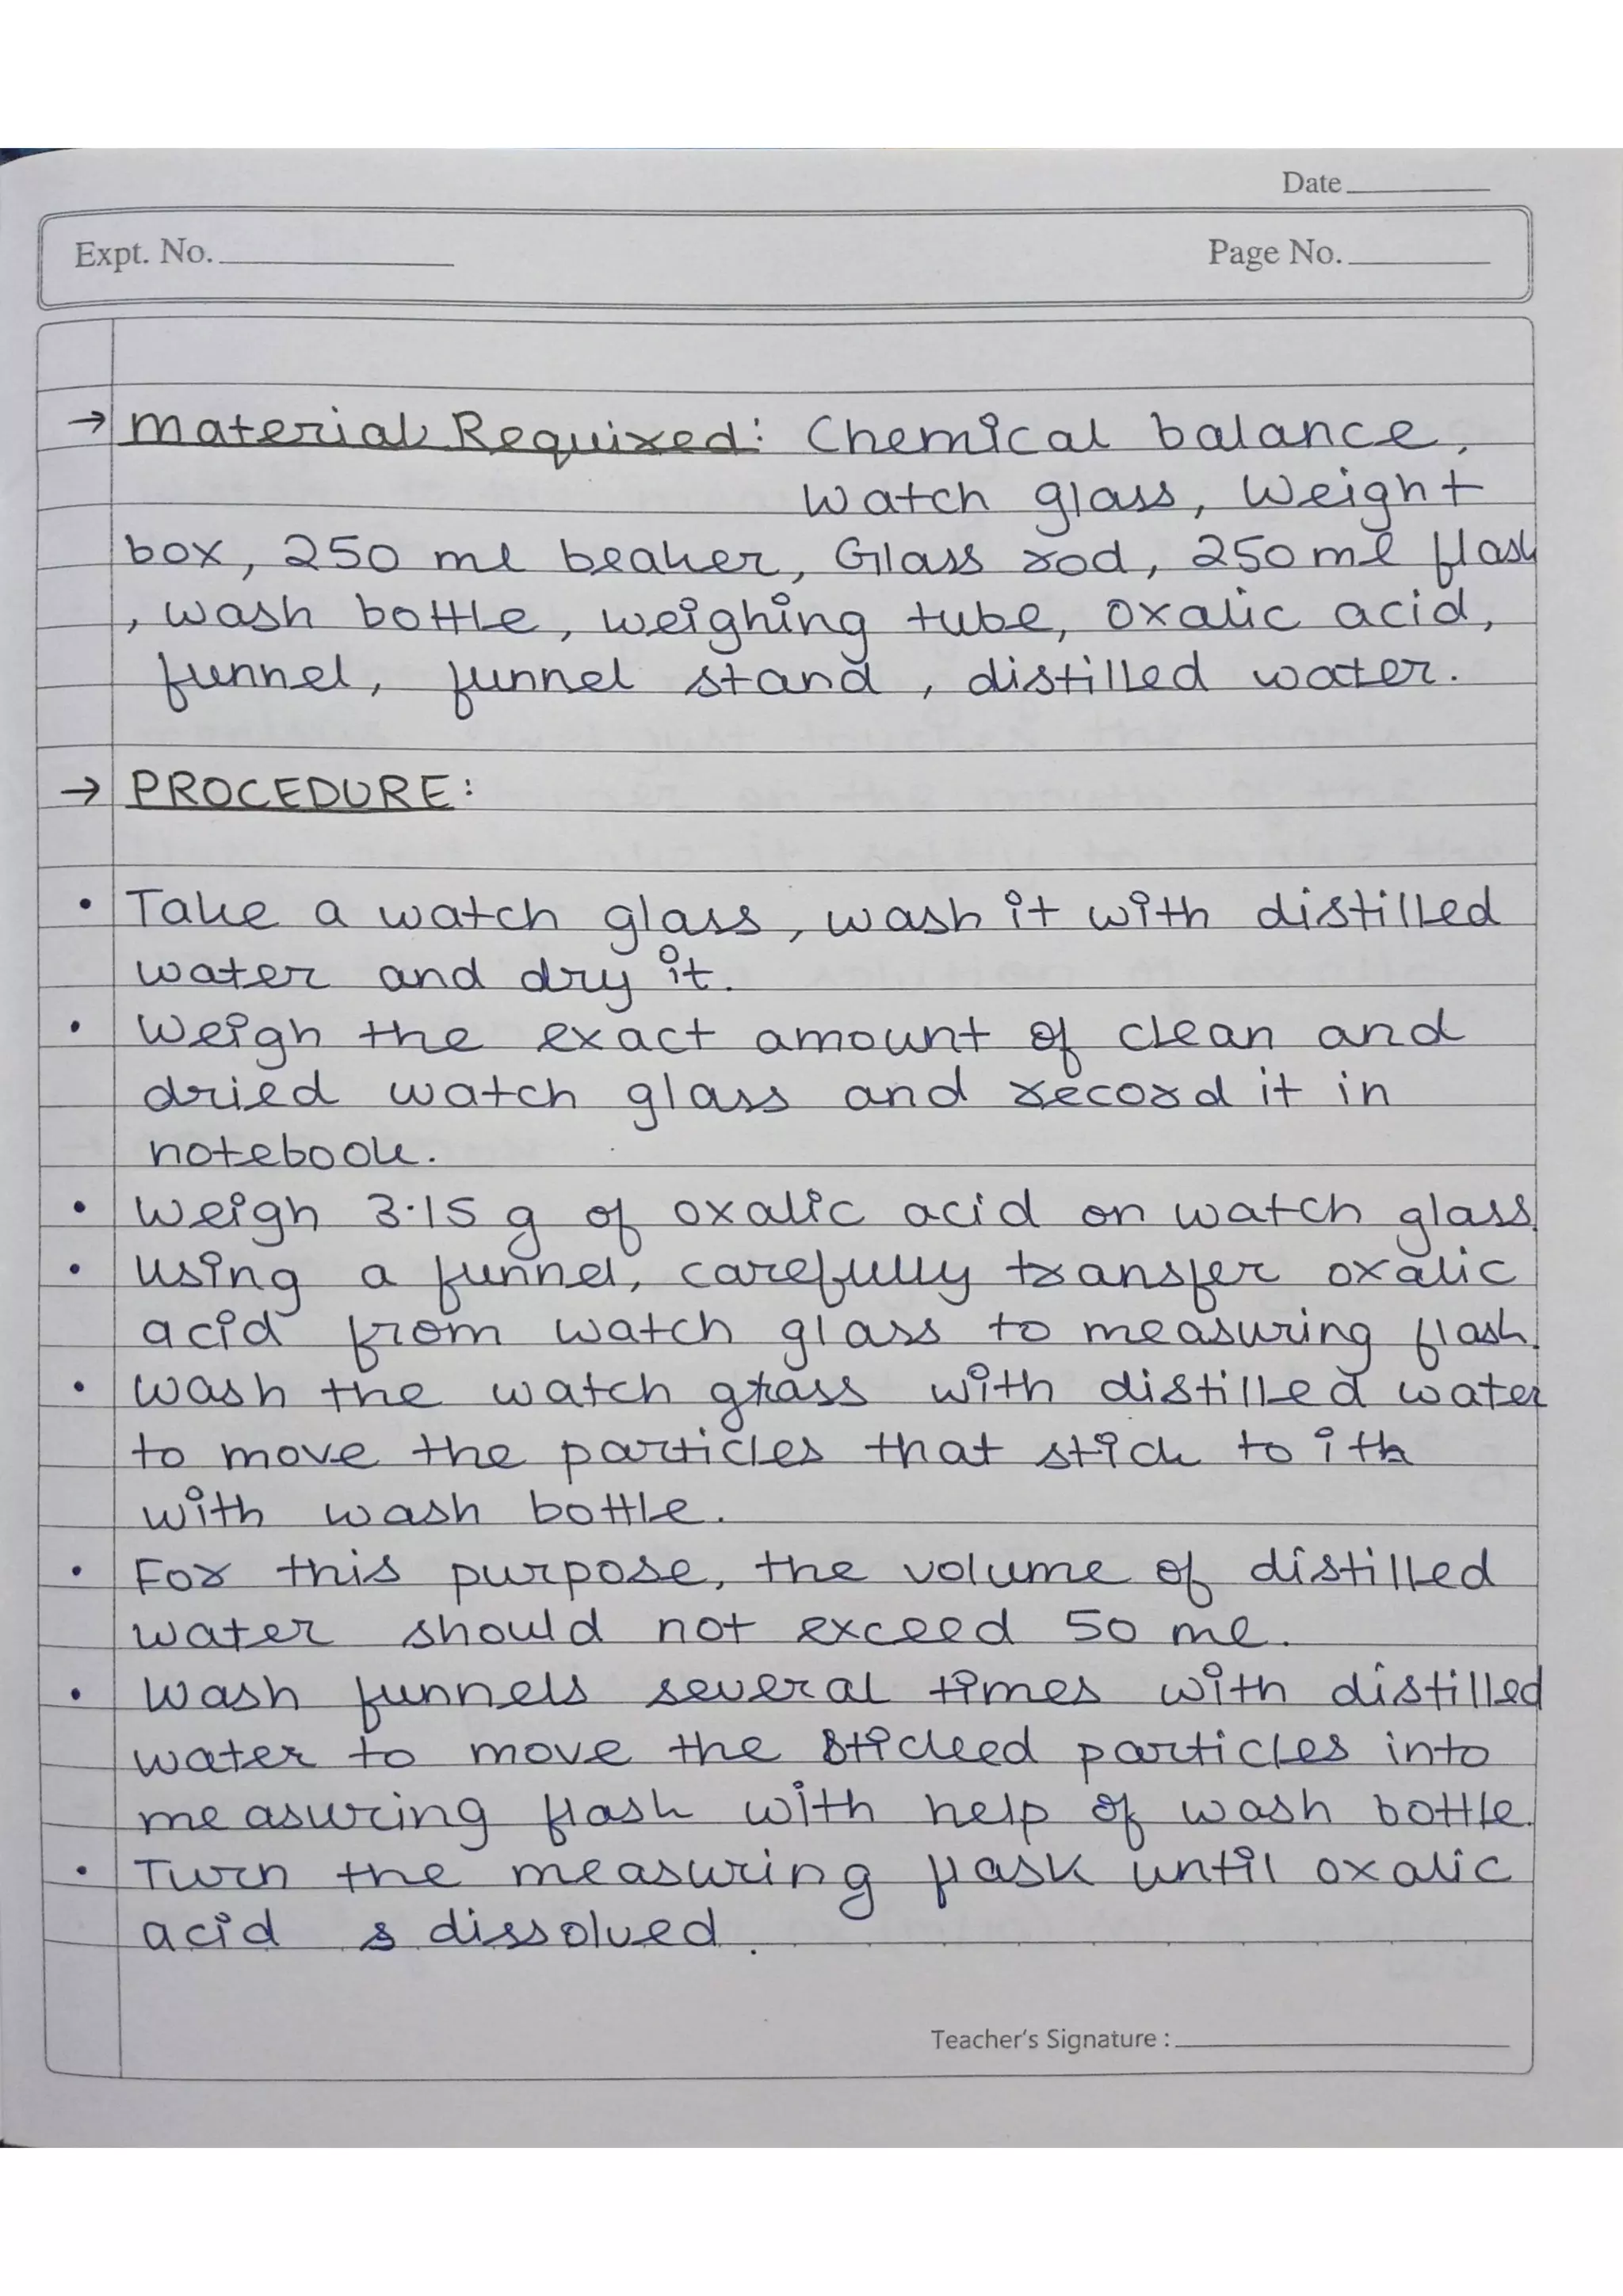 Date
Expt. No.
Page No.
→ Material Required: Chemical balance,
Watch glass, Weight
box, 250 ml beaker, Glass rod, 250 ml flask
, wash bottle, weighing tube, oxalic acid,
funnel, funnel stand, distilled water.
→ PROCEDURE:
• Take a watch glass, wash it with distilled
water and dry it.
• Weigh the exact amount of clean and
dried watch glass and record it in
notebook.
• Weigh 3.15 g of oxalic acid on watch glass.
• Using a funnel, carefully transfer oxalic
acid from watch glass to measuring flask.
• Wash the watch glass with distilled water
to move the particles that stick to it
with wash bottle.
• For this purpose, the volume of distilled
water should not exceed 50 ml.
• Wash funnels several times with distilled
water to move the sticked particles into
measuring flask with help of wash bottle.
• Turn the measuring flask until oxalic
acid is dissolved.
Teacher's Signature :